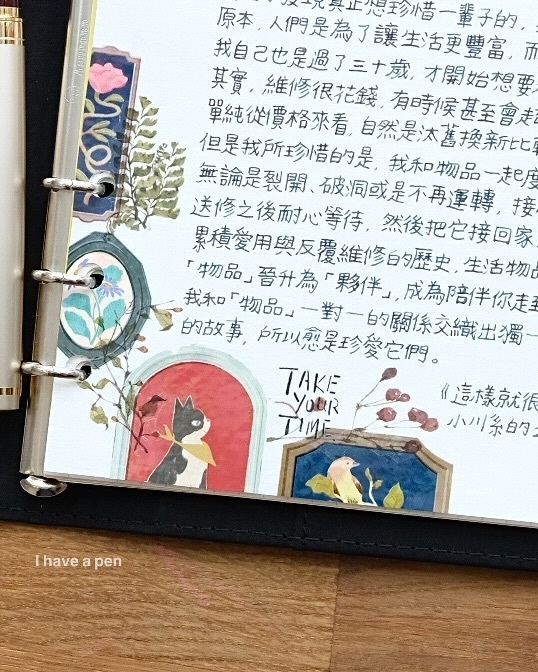 發現真正想珍惜一輩子的,
原本,人們是為了讓生活更豐富,而
我自己也是過了三十歲,才開始想要
其實,維修很花錢,有時候甚至會
單純從價格來看,自然是汰舊換新比
但是我所珍惜的是,我和物品一起度
無論是裂開、破洞或是不再運轉,
送修之後耐心等待,然後把它接回家
累積愛用與反覆維修的歷史,生活物品
「物品」晉升為「夥伴」,成為陪伴你走
我和「物品」一對一的關係交織出獨一
的故事,所以愈是珍愛它們。
TAKE
YOUR
TIME
《這樣就很
小川糸的
I have a pen